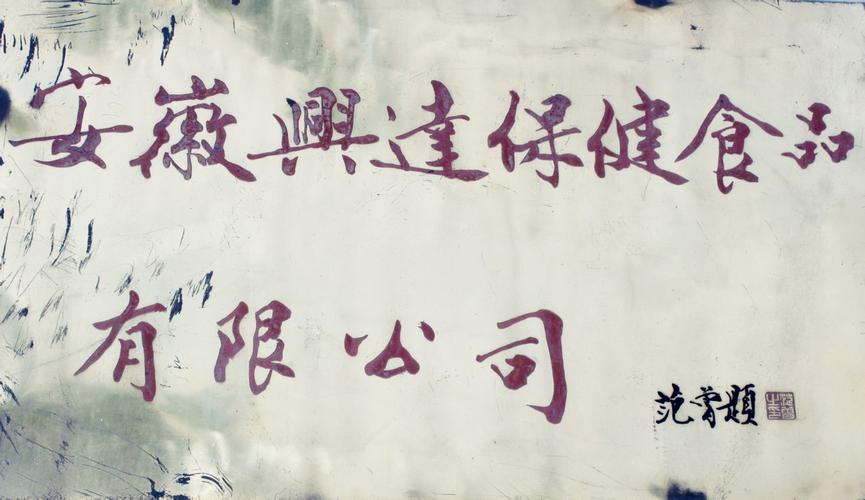 安徽興達保健食品
有限公司
范曾題